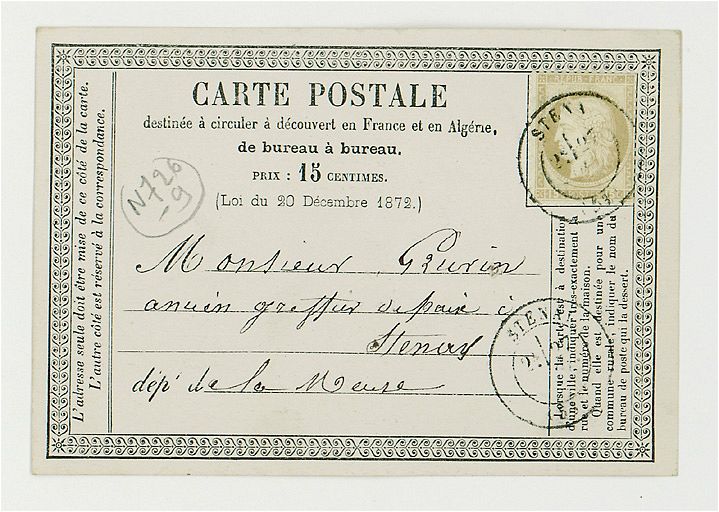 CARTE POSTALE
destinée à circuler à découvert en France et en Algérie,
de bureau à bureau.
PRIX : 15 CENTIMES.
(Loi du 20 Décembre 1872.)
N 726
9
REPUB. FRANC.
STENAY
Monsieur
ancien greffier de paix à
Stenay
dépt de la Meuse
STENAY
L'adresse seule doit être mise de ce côté de la carte.
L'autre côté est réservé à la correspondance.
Lorsque la carte est à destination
d'une ville, indiquer très-exactement la
rue et le numéro de la maison.
Quand elle est destinée pour une
commune rurale, indiquer le nom du
bureau de poste qui la dessert.